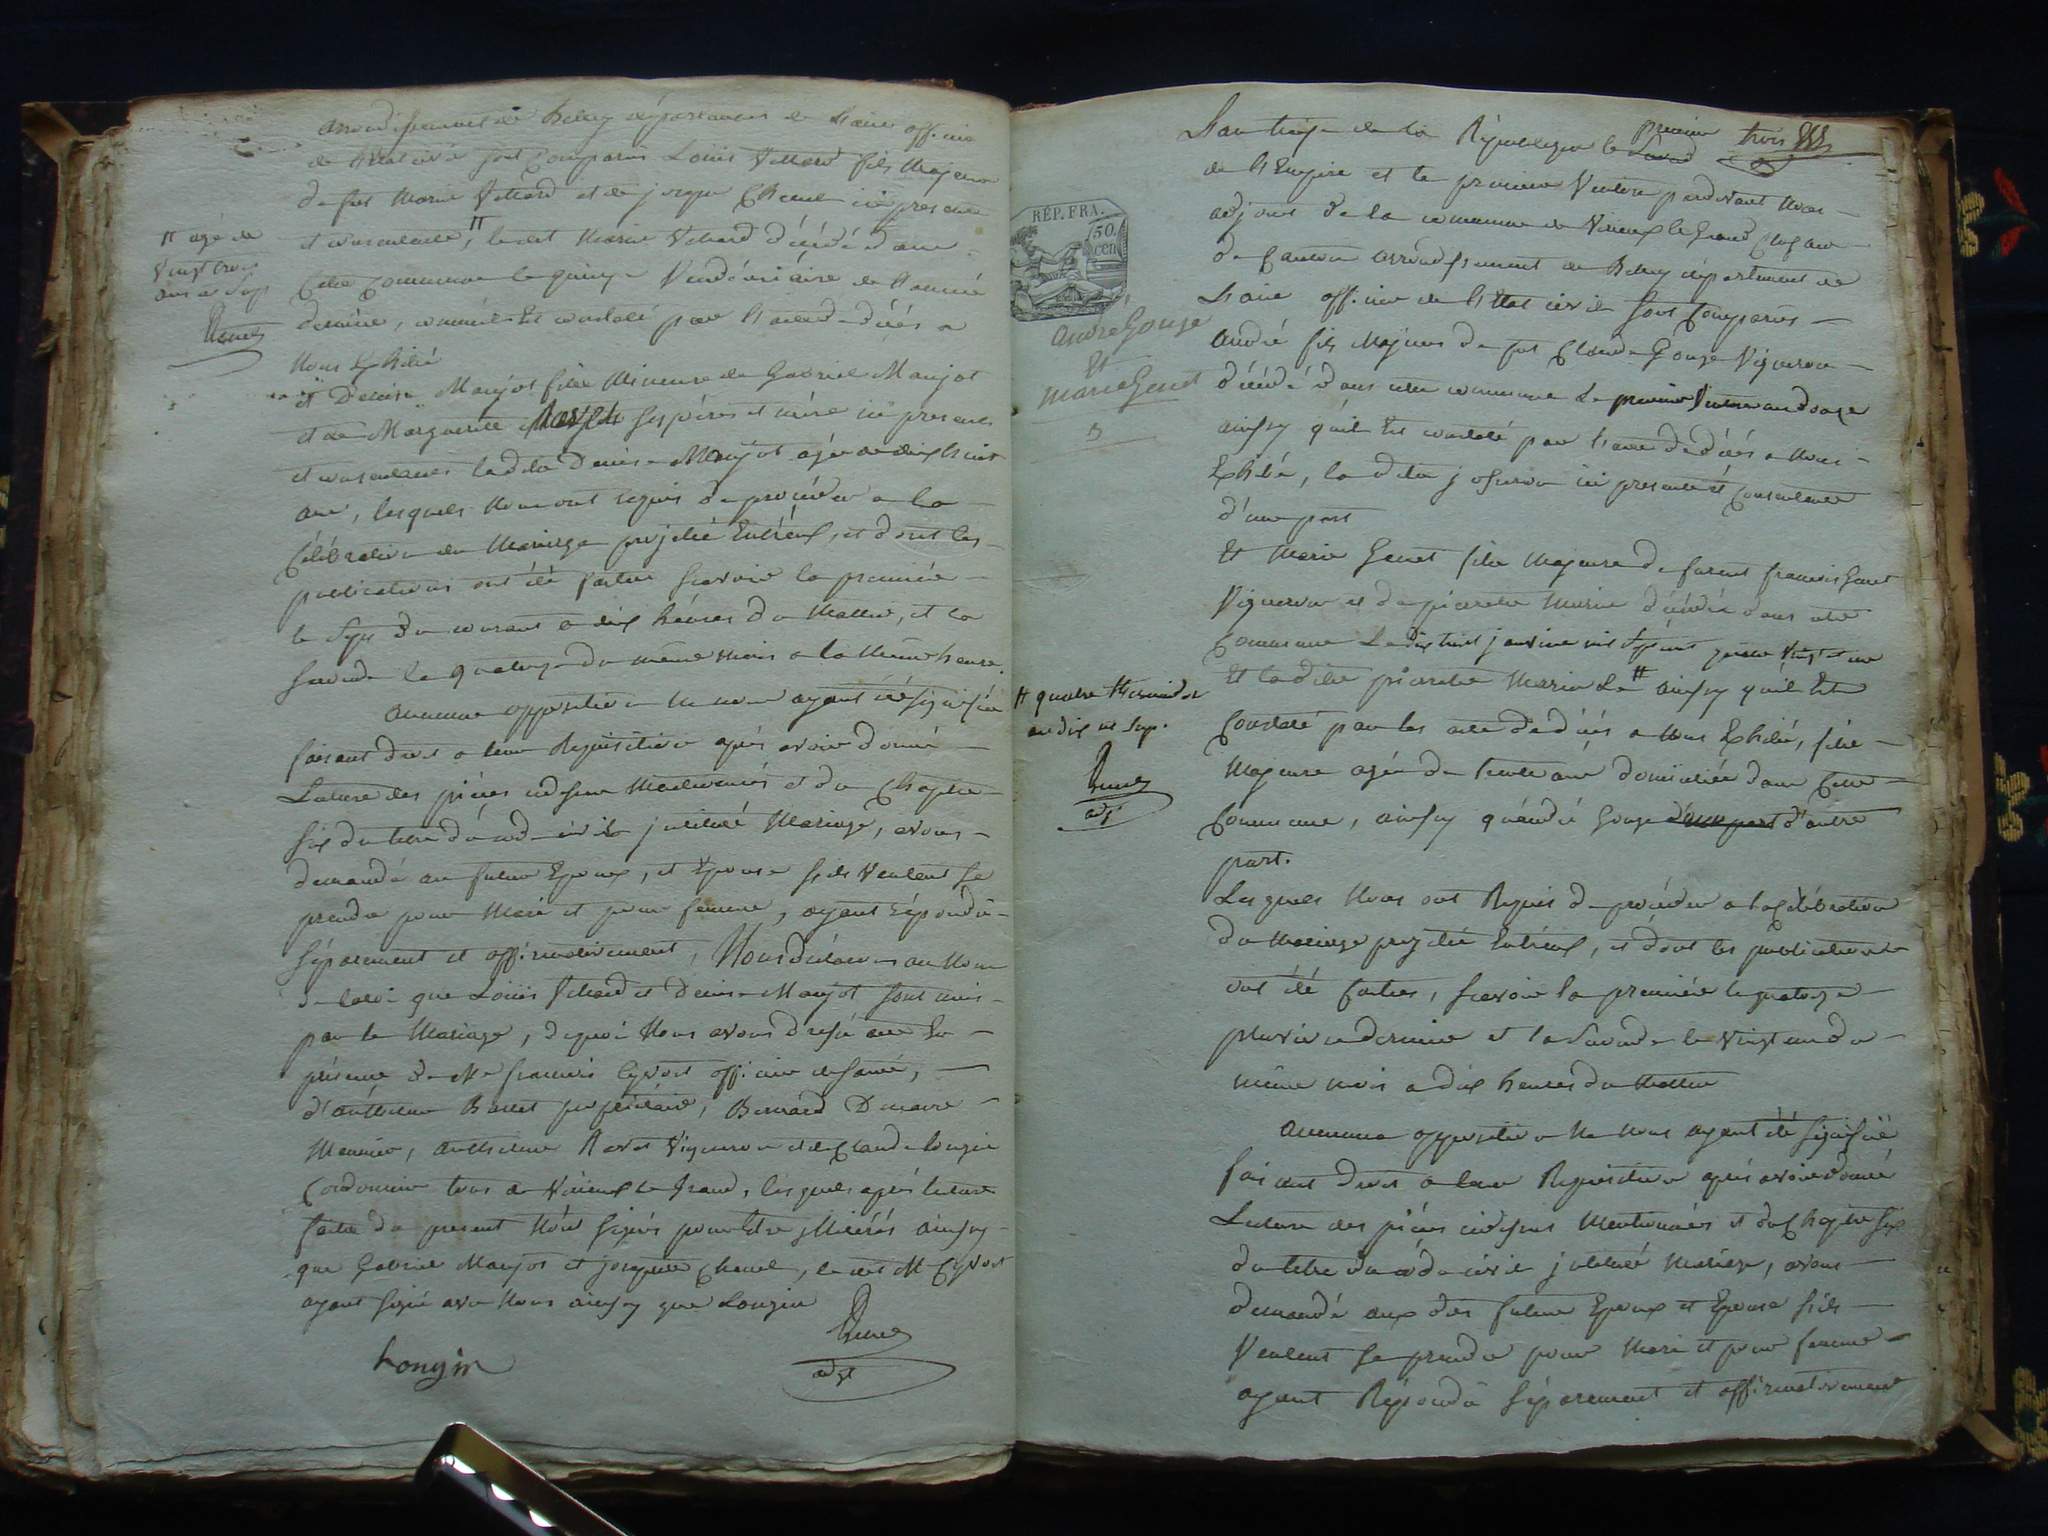 arrondissement de Belley département de l'ain officier
de l'état civil sont comparus Louis Vettard fils Majeur
de feu Marin Vettard et de
et consentante, ledit Marin Vettard décédé dans
cette commune le quinze Vendémiaire de l'année
dernière, comme il est constaté par l'acte de décès a
Nous Exhibé
et Denise Manjot fille Mineure de Gabriel Manjot
et de Marguerite ses père et mère ici presents
et consentants ladite Denise Manjot agée de dix huit
ans, lesquels Nous ont requis de procéder a la
Célébration du Mariage projetté Entreux, et dont les
publications ont été faites scavoir la première
le Sept du courant a dix heures du Matin, et la
seconde le quatorze du même mois a la Même heure
aucune opposition ne nous ayant été signifiée
faisant droit a leur Réquisition après avoir donné
Lecture des pièces cidessus Mentionnés et du Chapitre
six du titre du code civil intitulé Mariage, avons
demandé au futur Epoux, et Epouse s'ils veulent se
prendre pour Mari et pour femme, ayant répondu
séparement et affirmativement, Nous déclarons au Nom
de la loi que Louis Vettard et Denise Manjot sont unis
par le Mariage, de quoi Nous avons dressé acte En
présence de Me francois officier de santé,
d'anthelme propriétaire, Bernard
Meunier, anthelme Vigneron et de Claude Longin
Cordonnier tous de Virieux le Grand, lesquels après lecture
faite du present N'ont signés pour Etre illitérés ainsy
que Gabriel Manjot et , ledit M
ayant signé avec Nous ainsy que Longin
Longin
adjt
agé de
Vingt trois
ans
L'an treize de la République le premier trois
de L'Empire et le premier Ventose pardevant Nous
adjoint de la commune de Virieux le Grand
de Canton arrondissement de Belley département de
L'ain officier de L'Etat civil sont comparus
André fils Majeur de feu Claude Gouge Vigneron
décédé dans cette commune Le premier Ventose an douze
ainsy qu'il Est constaté par l'acte de décès a Nous
Exhibé, ici presente et Consentante
d'une part
Et Marie Genet fille Majeure de francois Genet
Vigneron et de pierrette Marin décédé dans cette
Commune Le dix huit janvier mil sept cent
Et la dite pierrette Marin Le ainsy qu'il Est
Constaté par les actes de décès a Nous Exhibé, fille
Majeure agée de trente ans domiciliée dans Cette
Commune, ainsy qu'andré Gouge d'une part d'autre
part.
Lesquels Nous ont Requis de procéder a la Célébration
du Mariage projetté Entreux, et dont les publications
ont été faites, scavoir la première le quatorze
pluviose dernier et la seconde le vingt un du
même mois a dix heures du Matin
aucune opposition Ne Nous ayant été signifiée
faisant droit a leur Réquisition après avoir donné
Lecture des pièces cidessus Mentionnées et du Chapitre six
du titre du code civil intitulé Mariage, avons
demandé aux dits futurs Epoux et Epouse s'ils
Veulent se prendre pour Mari et pour femme
ayant Répondu séparement et affirmativement
RÉP. FRA.
50
cen
André Gouge
Et
Marie Genet
quatre thermidor
an dix
adjt